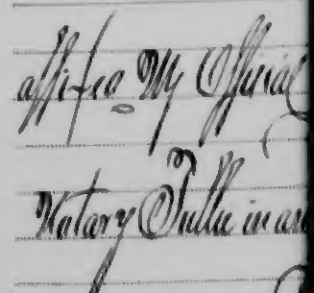 affixed My Official
Notary Public in an